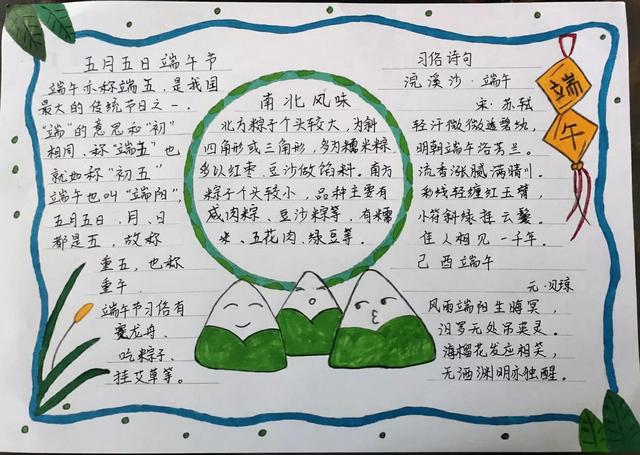 五月五日端午节
端午亦称端五，是我国
最大的传统节日之一．
"端"的意思和"初"
相同，称"端五"也
就如称"初五"
端午也叫"端阳"，
五月五日，月、日
都是五，故称
重五，也称
重午．
端午节习俗有
赛龙舟、
吃粽子、
挂艾草等。
南北风味
北方粽子个头较大，为斜
四角形或三角形，多为糯米粽
多以红枣、豆沙做馅料。南方
粽子个头较小，品种主要有
咸肉粽、豆沙粽等，有糯
米、五花肉、绿豆等。
习俗诗句
浣溪沙·端午
宋·苏轼
轻汗微微透碧纨，
明朝端午浴芳兰。
流香涨腻满晴川。
彩线轻缠红玉臂，
小符斜绿挂云鬟。
佳人相见一千年。
己酉端午
元·贝琼
风雨端阳生晦冥，
汨罗无处吊英灵。
海榴花发应相笑，
无酒渊明亦独醒。
端
午